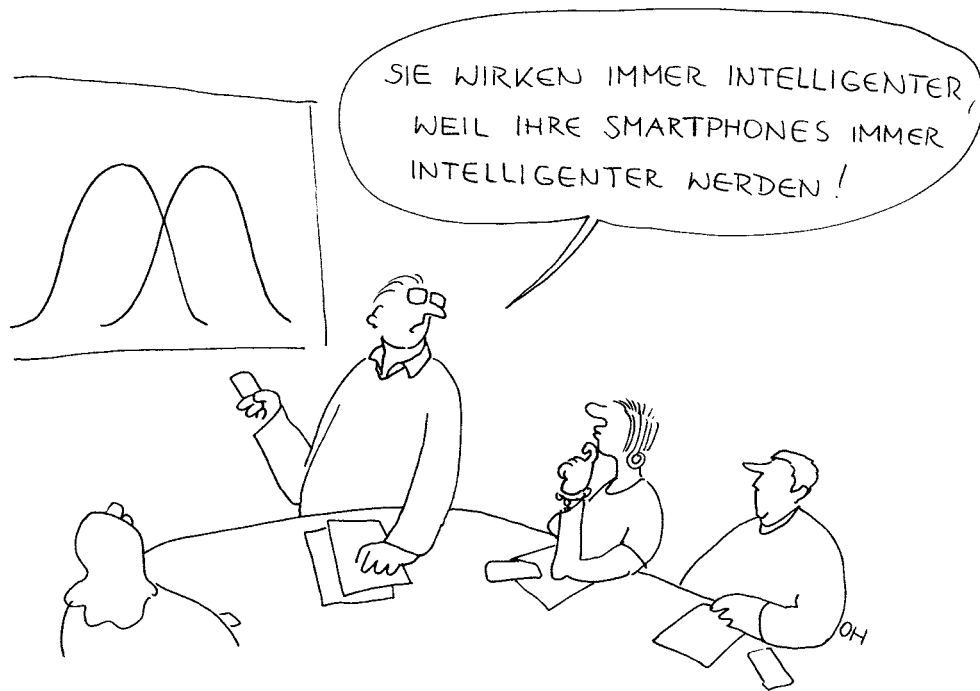 SIE WIRKEN IMMER INTELLIGENTER,
WEIL IHRE SMARTPHONES IMMER
INTELLIGENTER WERDEN!
OH